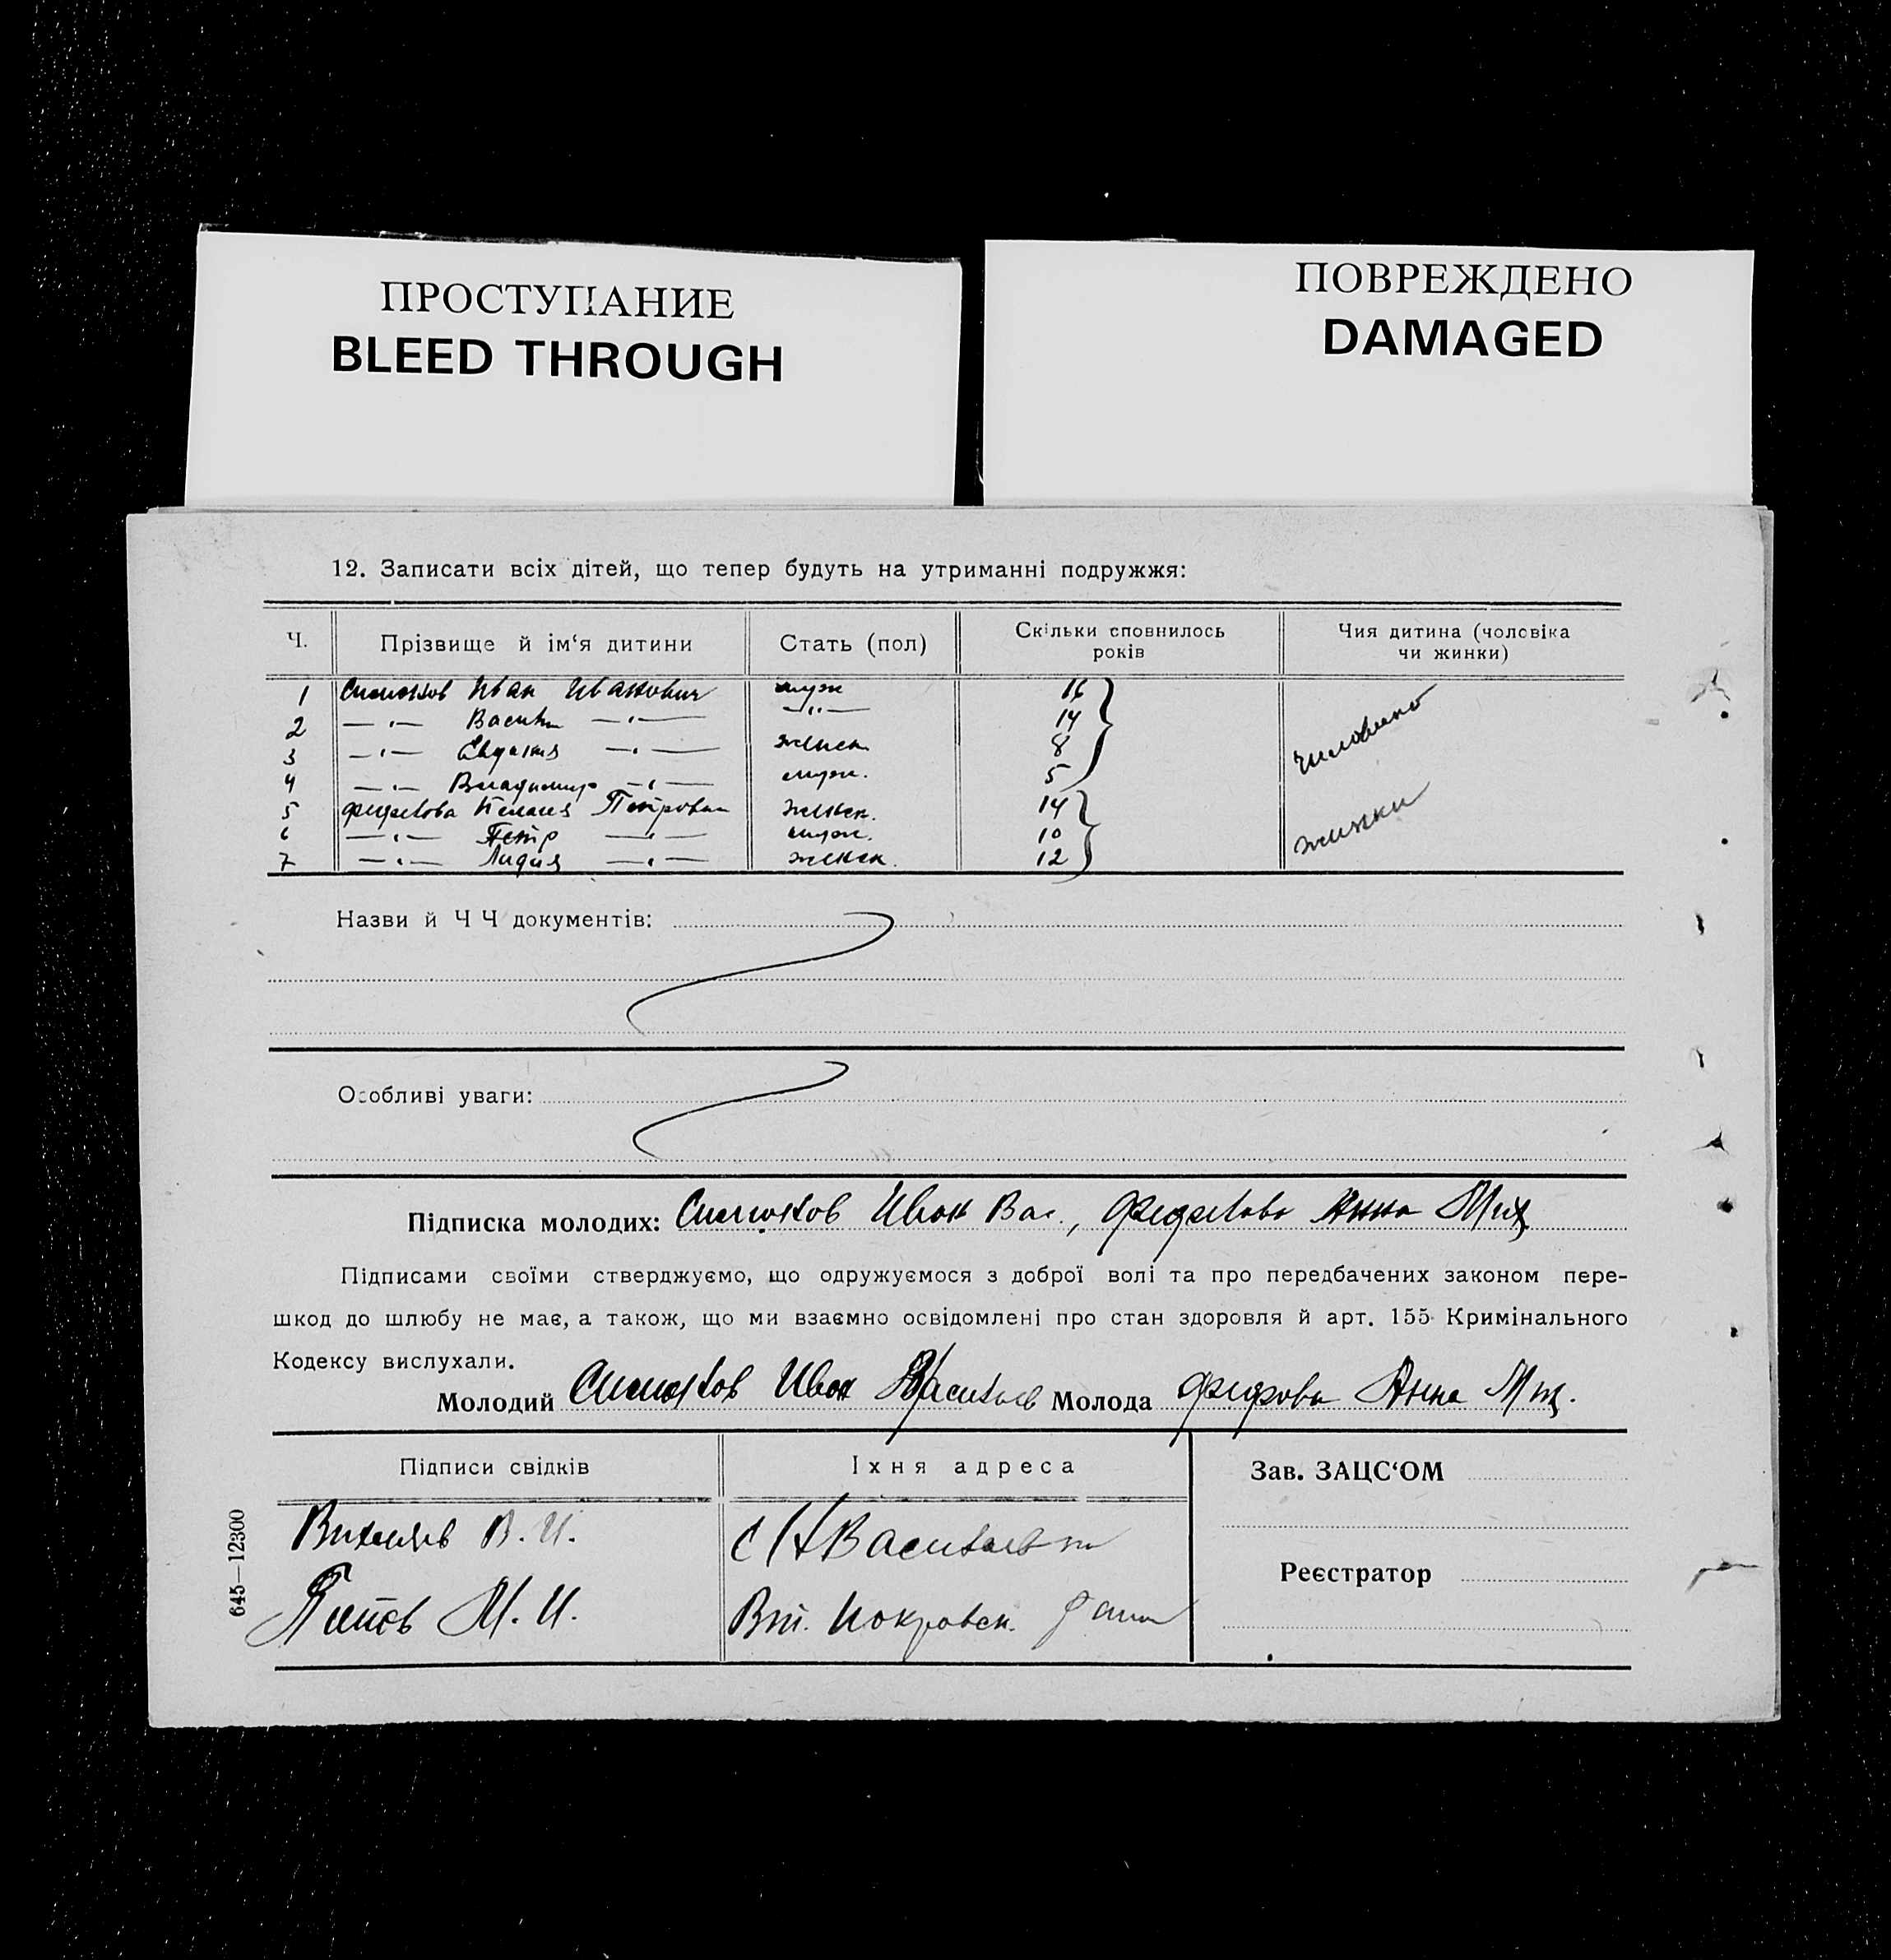 ПРОСТУПАНИЕ
BLEED THROUGH
ПОВРЕЖДЕНО
DAMAGED
12. Записати всіх дітей, що тепер будуть на утриманні подружжя:
Ч. Прізвище й ім‘я дитини Стать (пол) Скільки сповнилось років Чия дитина (чоловіка чи жинки)
1 Иван Иванович муж 16
2 —„— Васили —„— —„— 14
3 —„— Евдокия —„— женск 8
4 —„— Владимир —„— муж. 5
5 Пелагия Петровна женск. 14
6 —„— Петр —„— муж. 10
7 —„— Лидия —„— женск. 12
жинки
Назви й Ч Ч документів:
Особливі уваги:
Підписка молодих: Иван Вас., Анна
Підписами своїми стверджуємо, що одружуємося з доброї волі та про передбачених законом пере-
шкод до шлюбу не має, а також, що ми взаємно освідомлені про стан здоровля й арт. 155 Кримінального
Кодексу вислухали.
Молодий Иван Молода Анна
Підписи свідків Їхня адреса Зав. ЗАЦС‘ОМ
В. И.
Реєстратор
М. И.
645—12300